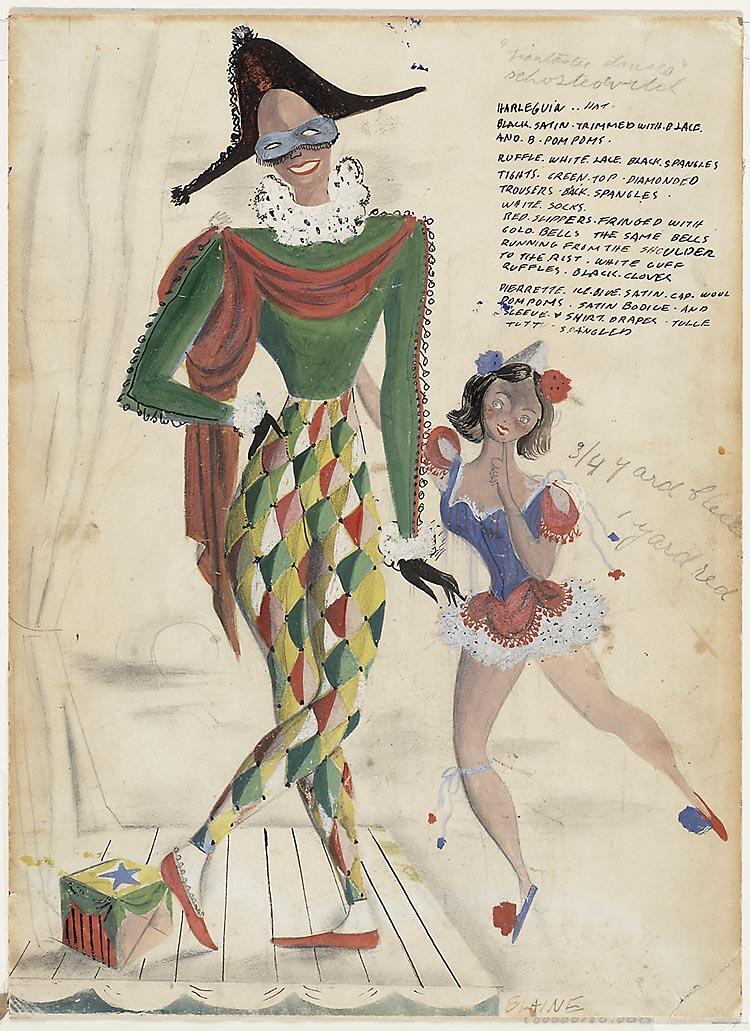 "Fantastic dances"
HARLEQUIN .. HAT.
BLACK. SATIN. TRIMMED WITH. B LACE.
AND. B. POM POMS.
RUFFLE. WHITE. LACE. BLACK. SPANGLES
TIGHTS. GREEN. TOP. DIAMONDED
TROUSERS. BLK. SPANGLES.
WHITE. SOCKS.
RED. SLIPPERS. FRINGED WITH
GOLD. BELLS THE SAME BELLS
RUNNING FROM THE SHOULDER
TO THE RIST. WHITE CUFF
RUFFLES. BLACK. GLOVES
PIERRETTE. ICE. BLUE. SATIN. CAP. WOOL
POM POMS. SATIN BODICE. AND
SLEEVE. & SKIRT. DRAPES. TULLE
TUTU. SPANGLED
3/4 yard blue
1 yard red
ELAINE